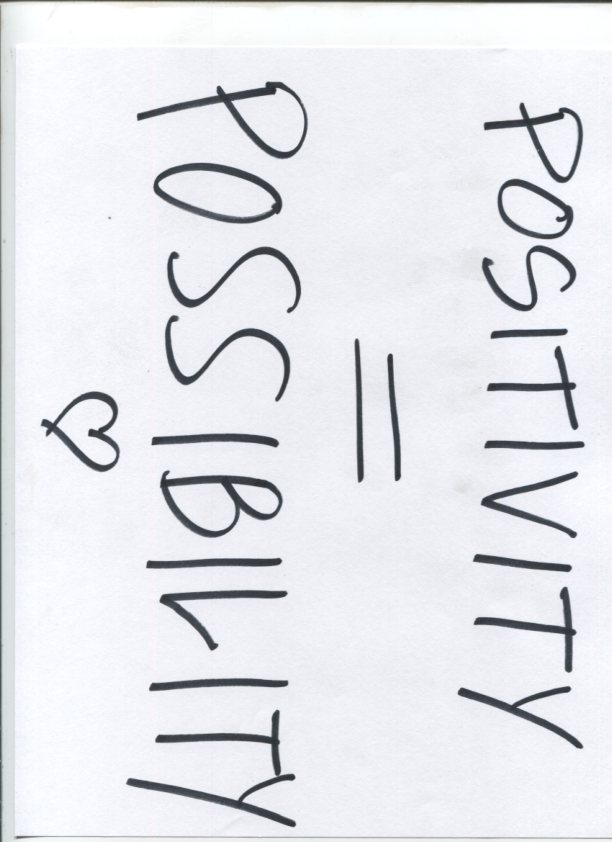 POSITIVITY
=
POSSIBILITY
♡